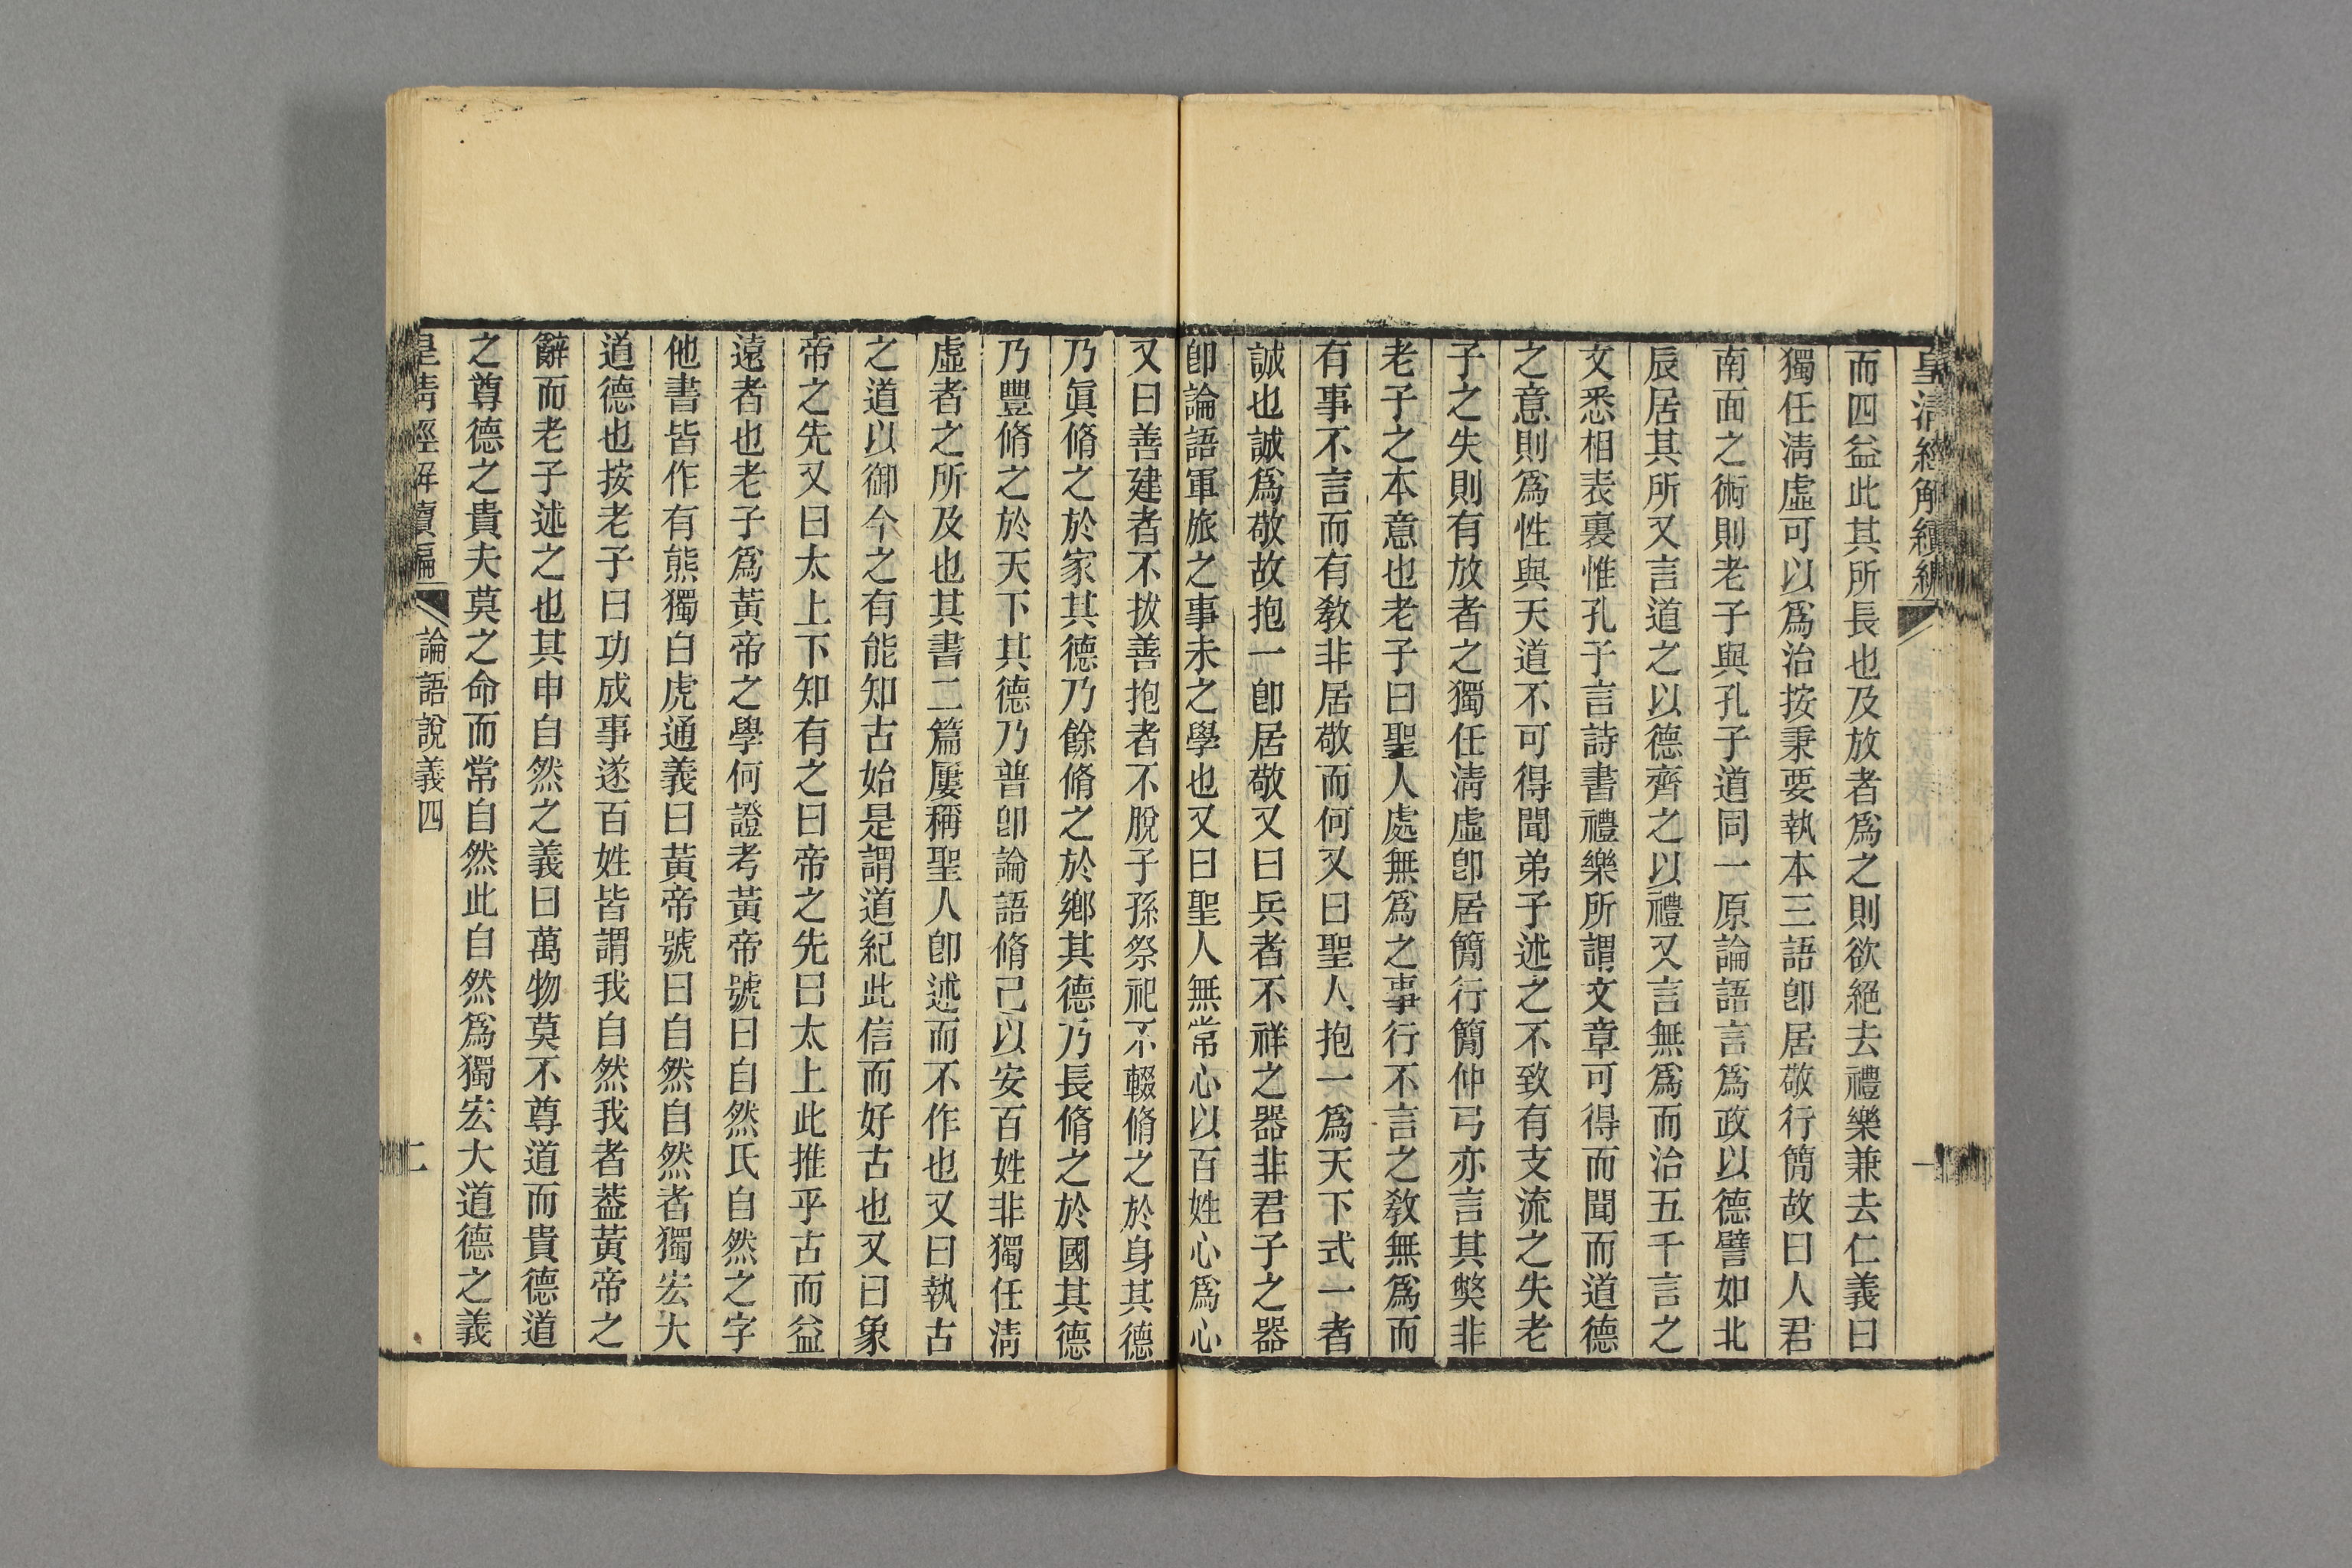 皇清經解續編
一
而四益此其所長也及放者爲之則欲絕去禮樂兼去仁義曰
獨任淸虛可以爲治按秉要執本三語卽居敬行簡故曰人君
南面之術則老子與孔子道同一原論語言爲政以德譬如北
辰居其所又言道之以德齊之以禮又言無爲而治五千言之
文悉相表裏惟孔子言詩書禮樂所謂文章可得而聞而道德
之意則爲性與天道不可得聞弟子述之不致有支流之失老
子之失則有放者之獨任淸虛卽居簡行簡仲弓亦言其獘非
老子之本意也老子曰聖人處無爲之事行不言之敎無爲而
有事不言而有敎非居敬而何又曰聖人抱一爲天下式一者
誠也誠爲敬故抱一卽居敬又曰兵者不祥之器非君子之器
卽論語軍旅之事未之學也又曰聖人無常心以百姓心爲心
又曰善建者不拔善抱者不脫子孫祭祀不輟脩之於身其德
乃眞脩之於家其德乃餘脩之於鄕其德乃長脩之於國其德
乃豐脩之於天下其德乃普卽論語脩己以安百姓非獨任淸
虛者之所及也其書二篇屢稱聖人卽述而不作也又曰執古
之道以御今之有能知古始是謂道紀此信而好古也又曰象
帝之先又曰太上下知有之曰帝之先曰太上此推乎古而益
遠者也老子爲黃帝之學何證考黃帝號曰自然氏自然之字
他書皆作有熊獨白虎通義曰黃帝號曰自然自然者獨宏大
道德也按老子曰功成事遂百姓皆謂我自然我者葢黃帝之
辭而老子述之也其申自然之義曰萬物莫不尊道而貴德道
之尊德之貴夫莫之命而常自然此自然爲獨宏大道德之義
皇淸經解續編
論語說義四
二